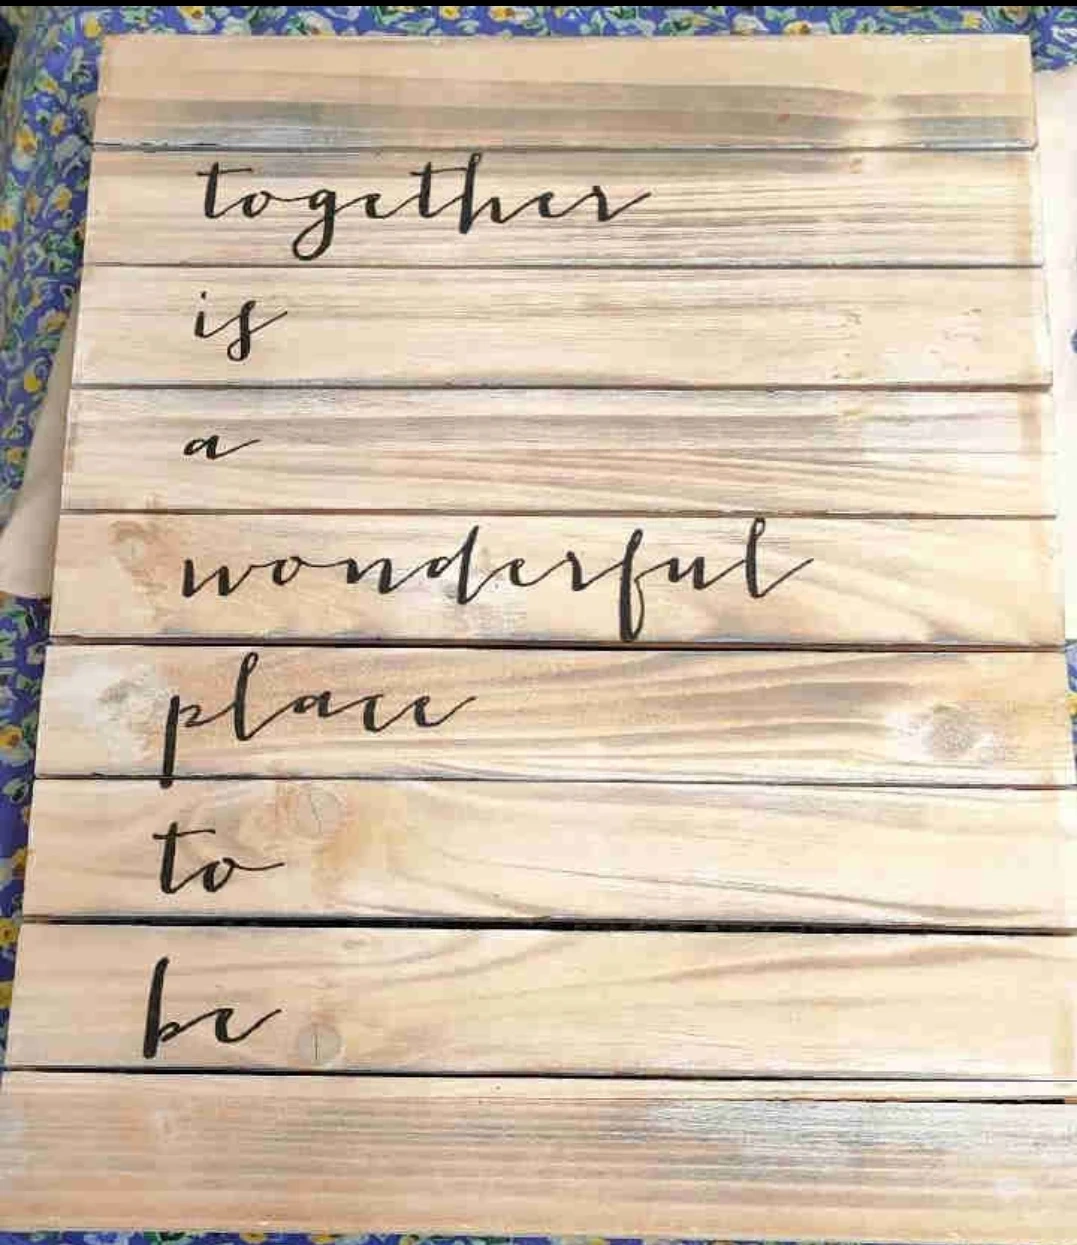 together
is
a
wonderful
place
to
be